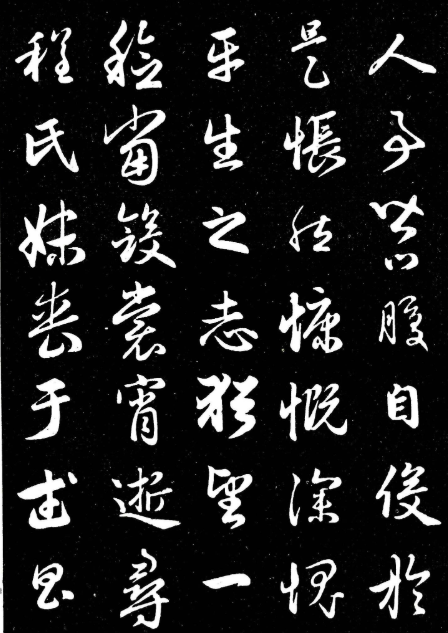 人事皆口腹自役於
是悵然慷慨深愧
平生之志猶望一
稔當斂裳宵逝尋
程氏妹喪于武昌